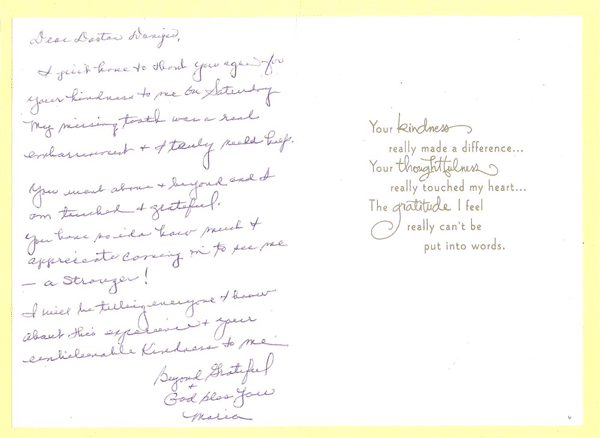 Dear Doctor
I just have to thank you again for
your kindness to me on Saturday
My missing tooth was a real
embarrassment & I truly needed help.
You went above & beyond and I
am touched & grateful.
You have no idea how much I
appreciate coming in to see me
— a Stranger!
I will be telling everyone I know
about this experience & your
unbelievable Kindness to me
Beyond Grateful
+
God bless You
Maria
Your kindness
really made a difference...
Your thoughtfulness
really touched my heart...
The gratitude I feel
really can't be
put into words.